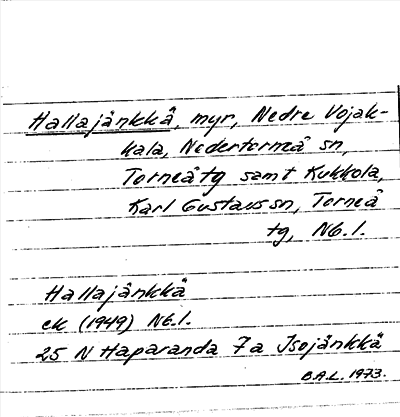 Hallajänkkä, myr, Nedre Vojak-
kala, Nedertorneå sn,
Torneå tg samt Kukkola,
Karl Gustavs sn, Torneå
tg, Nb. l.
Hallajänkkä
ek (1949) Nb. l.
25 N Haparanda 7a Isojänkkä
B.A.L. 1973.